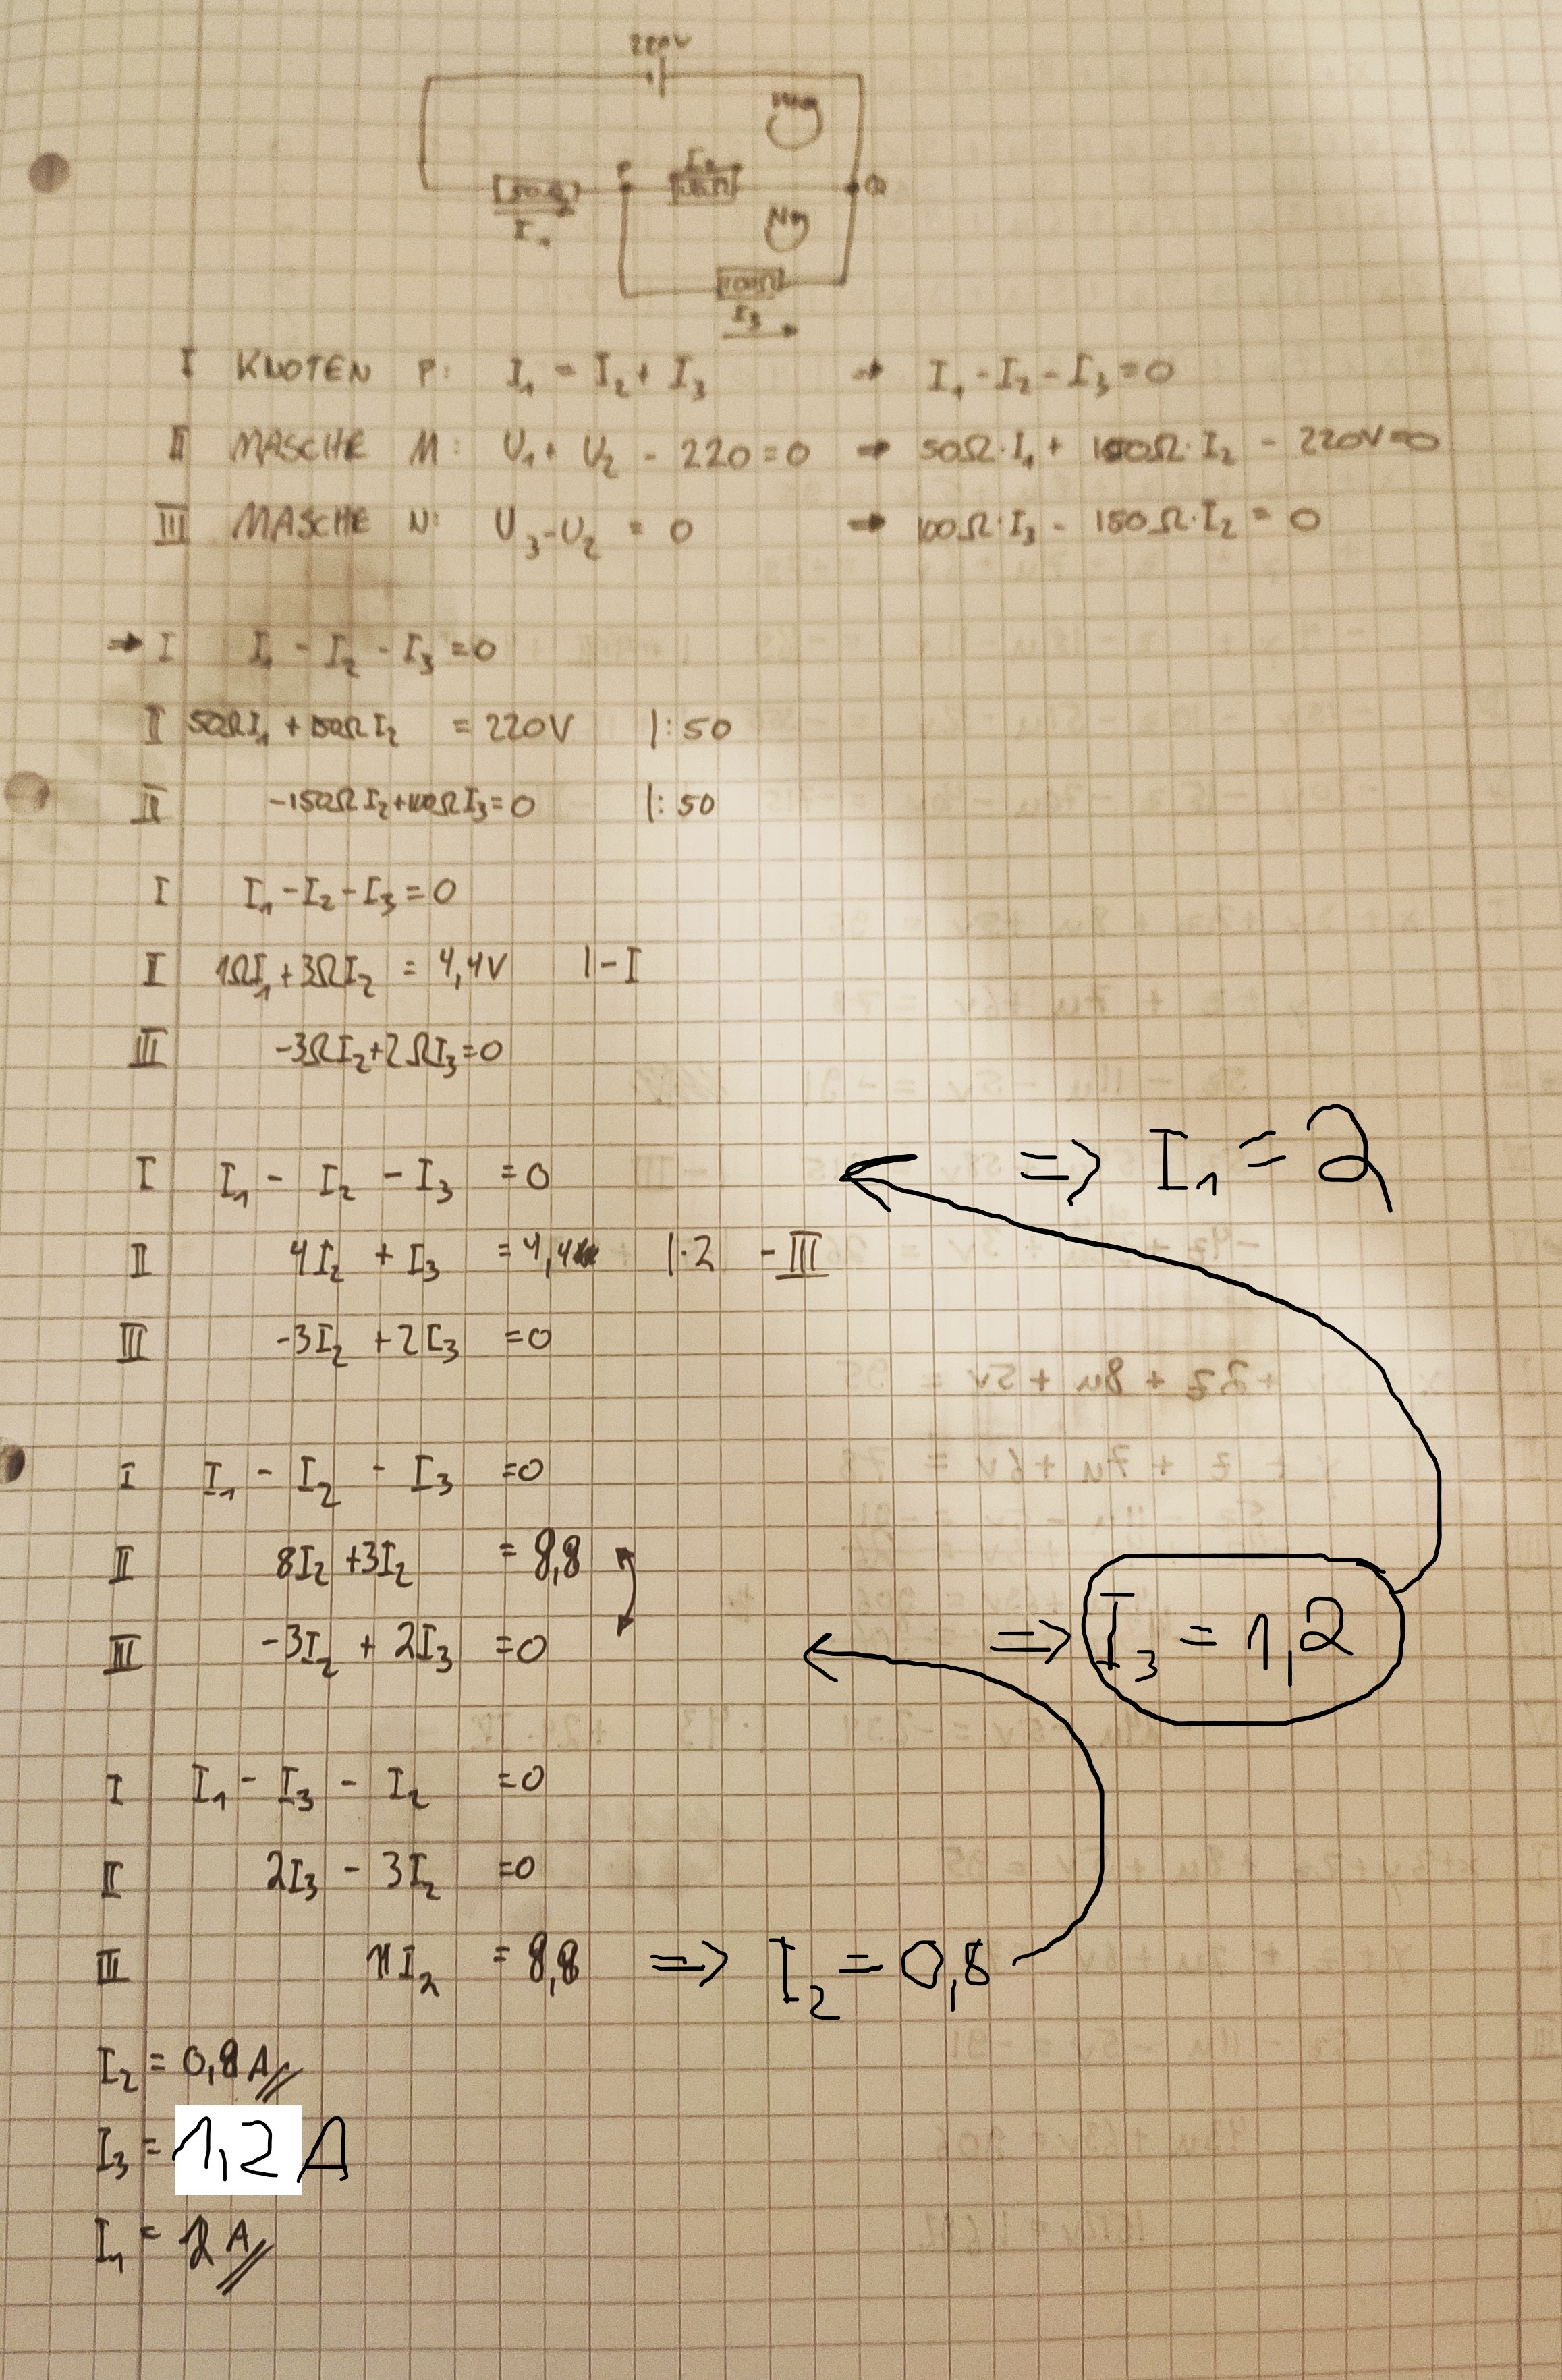 220V
50Ω
I₁
P
I₂
Q
100Ω
I₃
I KNOTEN P: I₁ = I₂ + I₃ → I₁ - I₂ - I₃ = 0
II MASCHE M: U₁ + U₂ - 220 = 0 → 50Ω·I₁ + 150Ω·I₂ - 220V = 0
III MASCHE N: U₃ - U₂ = 0 → 100Ω·I₃ - 150Ω·I₂ = 0
→ I I₁ - I₂ - I₃ = 0
II 50ΩI₁ + 150ΩI₂ = 220V |:50
II -150ΩI₂ + 100ΩI₃ = 0 |:50
I I₁ - I₂ - I₃ = 0
II 1ΩI₁ + 3ΩI₂ = 4,4V |-I
III -3ΩI₂ + 2ΩI₃ = 0
I I₁ - I₂ - I₃ = 0 ⇒ I₁ = 2
II 4I₂ + I₃ = 4,4 |·2 -III
III -3I₂ + 2I₃ = 0
I I₁ - I₂ - I₃ = 0
II 8I₂ + 3I₂ = 8,8
III -3I₂ + 2I₃ = 0 ⇒ I₃ = 1,2
I I₁ - I₃ - I₂ = 0
II 2I₃ - 3I₂ = 0
III 11I₂ = 8,8 ⇒ I₂ = 0,8
I₂ = 0,8 A
I₃ = 1,2 A
I₁ = 2 A